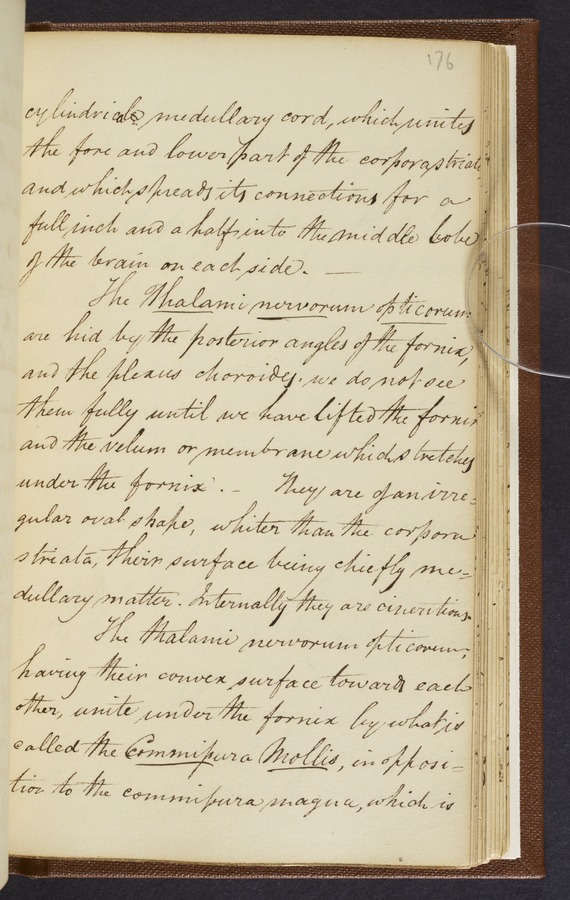 176
cylindrical medullary cord, which unites
the fore and lower part of the corpora striata,
and which spreads its connections for a
full inch and a half into the middle lobe
of the brain on each side. —
The Thalami nervorum opticorum
are hid by the posterior angles of the fornix,
and the plexus choroides. we do not see
them fully until we have lifted the fornix
and the velum or membrane which stretches
under the fornix. — They are of an irre=
gular oval shape, whiter than the corpora
striata, their surface being chiefly me=
dullary matter. Internally they are cineritious.
The thalami nervorum opticorum,
having their convex surface towards each
other, unite under the fornix by what is
called the Commissura Mollis, in opposi=
tion to the commissura magna, which is